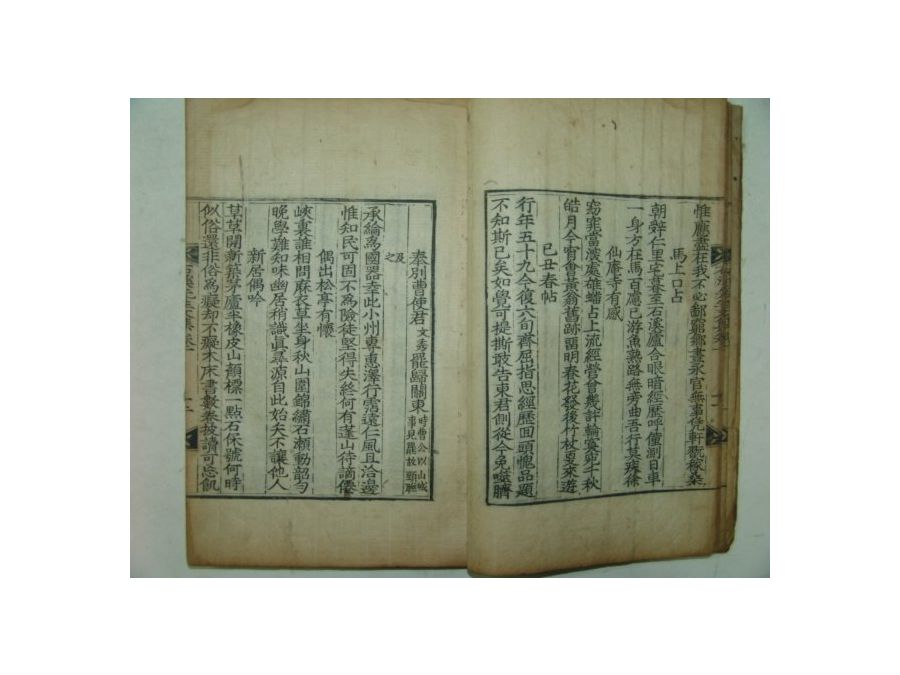 惟應盡在我不必鄙窮鄕晝永官無事凭軒翫稼桑
馬上口占
朝辭仁里宅暮至石溪廬合眼暗經歷呼僮測日車
一身方在馬百慮已游魚熟路無旁曲吾行莫疾徐
仙庵寺有感
窈窕當溪處雄蟠占上流經營曾幾許輪奐即千秋
皓月今宵會黃翁舊跡留明春花發後竹杖更來遊
己丑春帖
行年五十九今復六旬齊屈指思經歷回頭愧品題
不知斯已矣如覺可提撕敢告東君割從今免噬臍
奉別曹使君文秀罷歸關東時曹公以山城事見罷故頸聯
及之
承綸爲國器幸此小州專惠澤行霑遠仁風且洽邊
惟知民可固不爲險徒堅得失終何有蓬山待謫僊
偶出松亭有懷
峽裏誰相問麻衣草坐身秋山圍錦繡石瀨動韶勻
晩學難知味幽居稍識眞尋源自此始矢不讓他人
新居偶吟
草草開新築茅廬半橡皮山顏標一點石保號何時
似俗還非俗爲癡却不癡木床書數卷披讀可忘飢